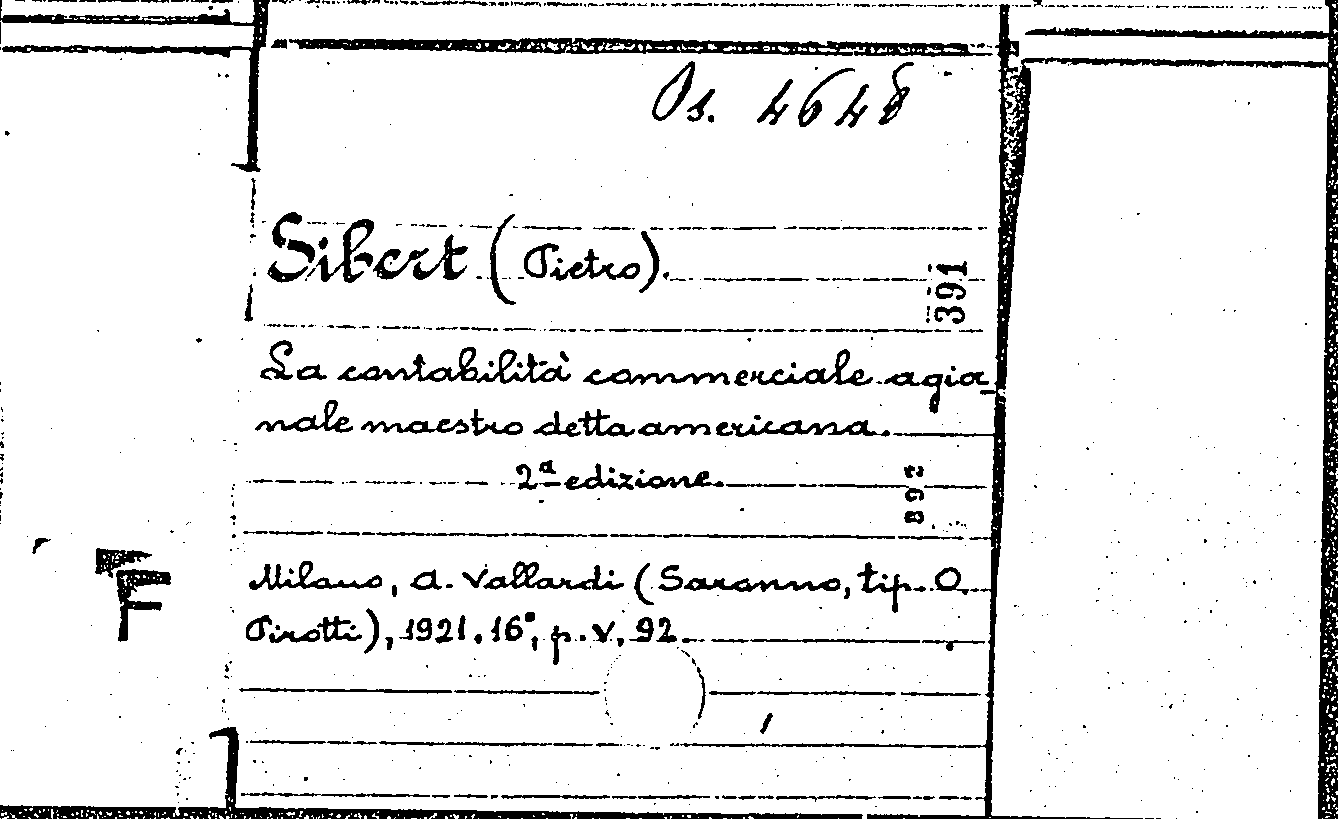 Ps. 4648
Sibert (Pietro).
391
La contabilità commerciale a gior
nale maestro detta americana.
2ª edizione.
892
Milano, A. Vallardi (Saranno, tip. O.
Pirotti), 1921. 16°, p. V, 92.
F